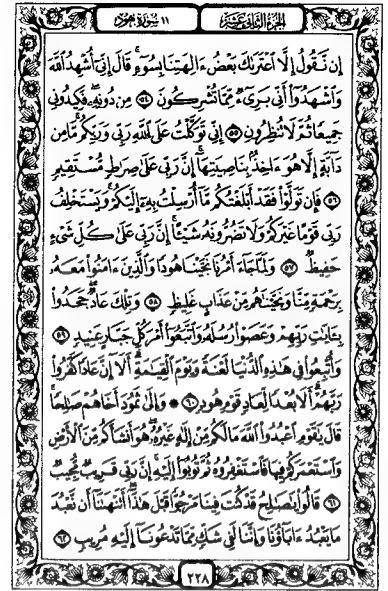 الجزء الثاني عشر
١١ سورة هود
إِن نَّقُولُ إِلَّا ٱعْتَرَىٰكَ بَعْضُ ءَالِهَتِنَا بِسُوٓءٍ ۗ قَالَ إِنِّىٓ أُشْهِدُ ٱللَّهَ
وَٱشْهَدُوٓا۟ أَنِّى بَرِىٓءٌ مِّمَّا تُشْرِكُونَ ٥٤ مِن دُونِهِۦ ۖ فَكِيدُونِى
جَمِيعًا ثُمَّ لَا تُنظِرُونِ ٥٥ إِنِّى تَوَكَّلْتُ عَلَى ٱللَّهِ رَبِّى وَرَبِّكُم ۚ مَّا مِن
دَآبَّةٍ إِلَّا هُوَ ءَاخِذٌۢ بِنَاصِيَتِهَآ ۚ إِنَّ رَبِّى عَلَىٰ صِرَٰطٍ مُّسْتَقِيمٍ
٥٦ فَإِن تَوَلَّوْا۟ فَقَدْ أَبْلَغْتُكُم مَّآ أُرْسِلْتُ بِهِۦٓ إِلَيْكُمْ ۚ وَيَسْتَخْلِفُ
رَبِّى قَوْمًا غَيْرَكُمْ وَلَا تَضُرُّونَهُۥ شَيْـًٔا ۚ إِنَّ رَبِّى عَلَىٰ كُلِّ شَىْءٍ
حَفِيظٌ ٥٧ وَلَمَّا جَآءَ أَمْرُنَا نَجَّيْنَا هُودًا وَٱلَّذِينَ ءَامَنُوا۟ مَعَهُۥ
بِرَحْمَةٍ مِّنَّا وَنَجَّيْنَٰهُم مِّنْ عَذَابٍ غَلِيظٍ ٥٨ وَتِلْكَ عَادٌ ۖ جَحَدُوا۟
بِـَٔايَٰتِ رَبِّهِمْ وَعَصَوْا۟ رُسُلَهُۥ وَٱتَّبَعُوٓا۟ أَمْرَ كُلِّ جَبَّارٍ عَنِيدٍ ٥٩
وَأُتْبِعُوا۟ فِى هَٰذِهِ ٱلدُّنْيَا لَعْنَةً وَيَوْمَ ٱلْقِيَٰمَةِ ۗ أَلَآ إِنَّ عَادًا كَفَرُوا۟
رَبَّهُمْ ۗ أَلَا بُعْدًا لِّعَادٍ قَوْمِ هُودٍ ٦٠ ۞ وَإِلَىٰ ثَمُودَ أَخَاهُمْ صَٰلِحًا ۚ
قَالَ يَٰقَوْمِ ٱعْبُدُوا۟ ٱللَّهَ مَا لَكُم مِّنْ إِلَٰهٍ غَيْرُهُۥ ۖ هُوَ أَنشَأَكُم مِّنَ ٱلْأَرْضِ
وَٱسْتَعْمَرَكُمْ فِيهَا فَٱسْتَغْفِرُوهُ ثُمَّ تُوبُوٓا۟ إِلَيْهِ ۚ إِنَّ رَبِّى قَرِيبٌ مُّجِيبٌ
٦١ قَالُوا۟ يَٰصَٰلِحُ قَدْ كُنتَ فِينَا مَرْجُوًّا قَبْلَ هَٰذَآ ۖ أَتَنْهَىٰنَآ أَن نَّعْبُدَ
مَا يَعْبُدُ ءَابَآؤُنَا وَإِنَّنَا لَفِى شَكٍّ مِّمَّا تَدْعُونَآ إِلَيْهِ مُرِيبٍ ٦٢
٢٢٨